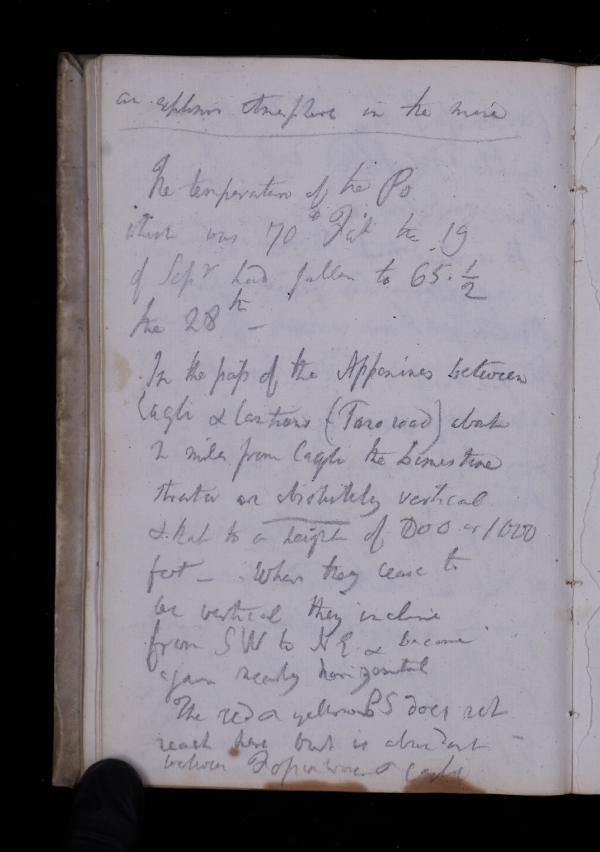 an explosive atmosphere in the mine
The temperature of the Po
which was 70° the 19
of Sepr had fallen to 65.½
the 28th –
In the pass of the Appenines between
Cagli & (Furo road) about
2 miles from Cagli the Limestone
strata are absolutely vertical
& that to a height of 800 or 1000
feet – . When they cease to
be vertical they incline
from SW to NE & become
again nearly horizontal
The red & yellow S does not
reach here but is abundant –
between &